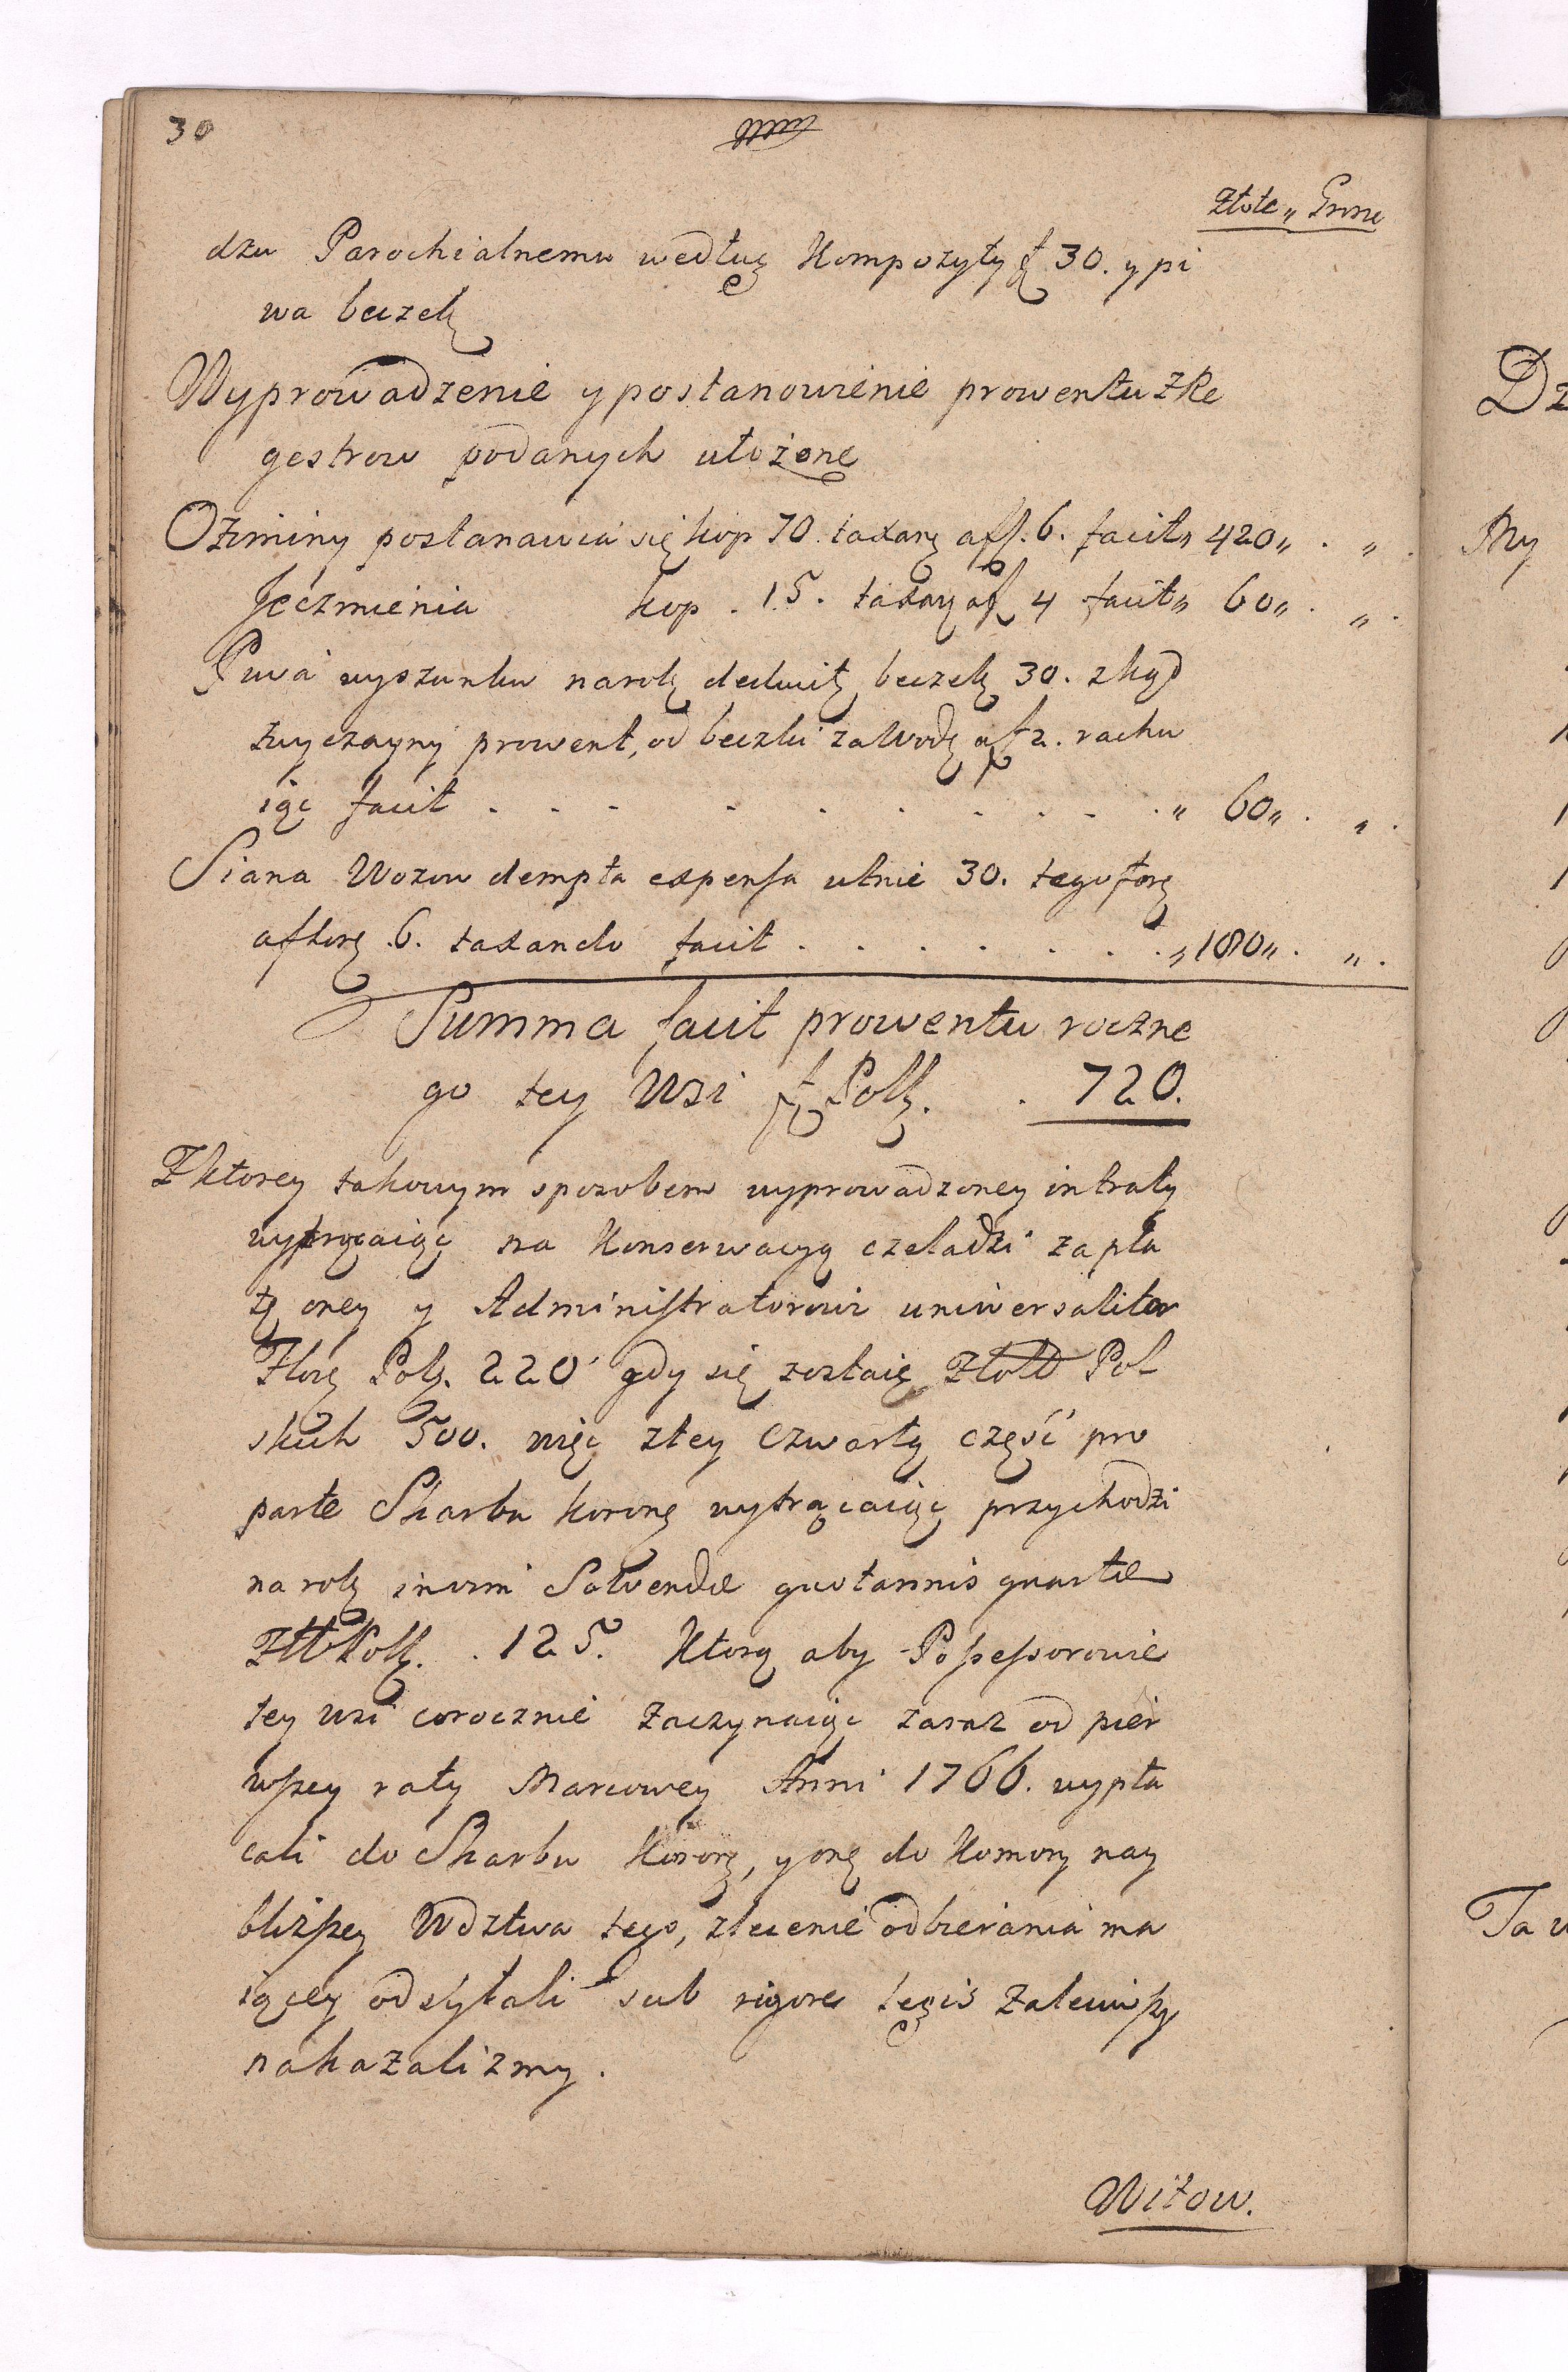 30
Złote „ Grosze
dzu Parochialnemu według Kompozyty f 30. y pi
wa beczek
Wyprowadzenie y postanowienie prowentu z Re
gestrow podanych ułożone
Oziminy postanawia się kop 70. taxan a ff. 6. facit „ 420 „ . „ .
Jęczmienia kop . 15. taxan a f 4 facit „ 60 „ . „ .
Piwa wyszunku na rok deduit beczek 30. zkąd
zwyczayny prowent, od beczki za Wodę a f 2. rachu
iąc facit . . . . . . . . . . „ 60 „ . „ .
Siana Wozow dempta expensa utnie 30. tego
a flore .6. taxando facit . . . . . . . „ 180 „ . „ .
Summa facit prowentu roczne
go tey Wsi f Polk. . 720.
Z ktorey takowym sposobem wyprowadzoney intraty
wytrącaiąc na Konserwacyą czeladzi zapła
tę oney y Administratorowi universaliter
Flore Polk. 220 gdy się zostaie Złott Pol
skich 500. więc z tey czwartą część pro
parte Skarbu Korone wytrącaiąc przychodzi
na rok inszm Solvendae quotannis quartae
Złł Polk. . 125. Ktorą aby Possessorowie
tey wsi corocznie zaczynaiąc zaraz od pier
wszey raty Marcowey Anni 1766. wypła
cali do Skarbu Korone, y onę do Komory nay
bliższey Wdztwa tego, zlecenie odbierania ma
iącey odsyłali sub rigore legis zaleciwszy
nakazalizmy.
Witow.
Dz
My
Ta w